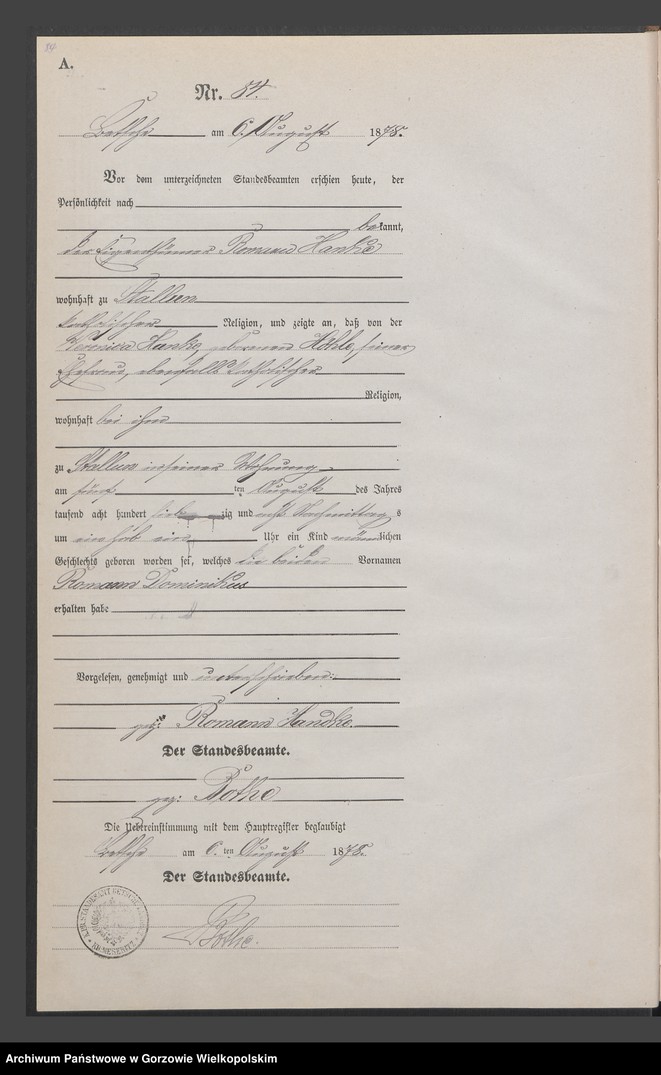 84
A.
Nr. 84.
Betsche am 6. August 1878.
Vor dem unterzeichneten Standesbeamten erschien heute, der
Persönlichkeit nach
bekannt,
der Eigenthümer Roman Hanke
wohnhaft zu Stallun
katholischer Religion, und zeigte an, daß von der
Veronica Hanke, geborenen Höhle, seiner
Ehefrau, ebenfalls katholischer
Religion,
wohnhaft bei ihm
zu Stallun in seiner Wohnung
am fünf ten August des Jahres
tausend acht hundert siebenzig und acht Nachmittags
um ein halb ein Uhr ein Kind männlichen
Geschlechts geboren worden sei, welches die beiden Vornamen
Romann Dominikus
erhalten habe
Vorgelesen, genehmigt und unterschrieben:
gez: Romann Handke.
Der Standesbeamte.
gez: Bothe
Die Uebereinstimmung mit dem Hauptregister beglaubigt
Betsche am 6. ten August 1878.
Der Standesbeamte.
Bothe.
STANDESAMT BETSCHE
KR. MESERITZ
Archiwum Państwowe w Gorzowie Wielkopolskim